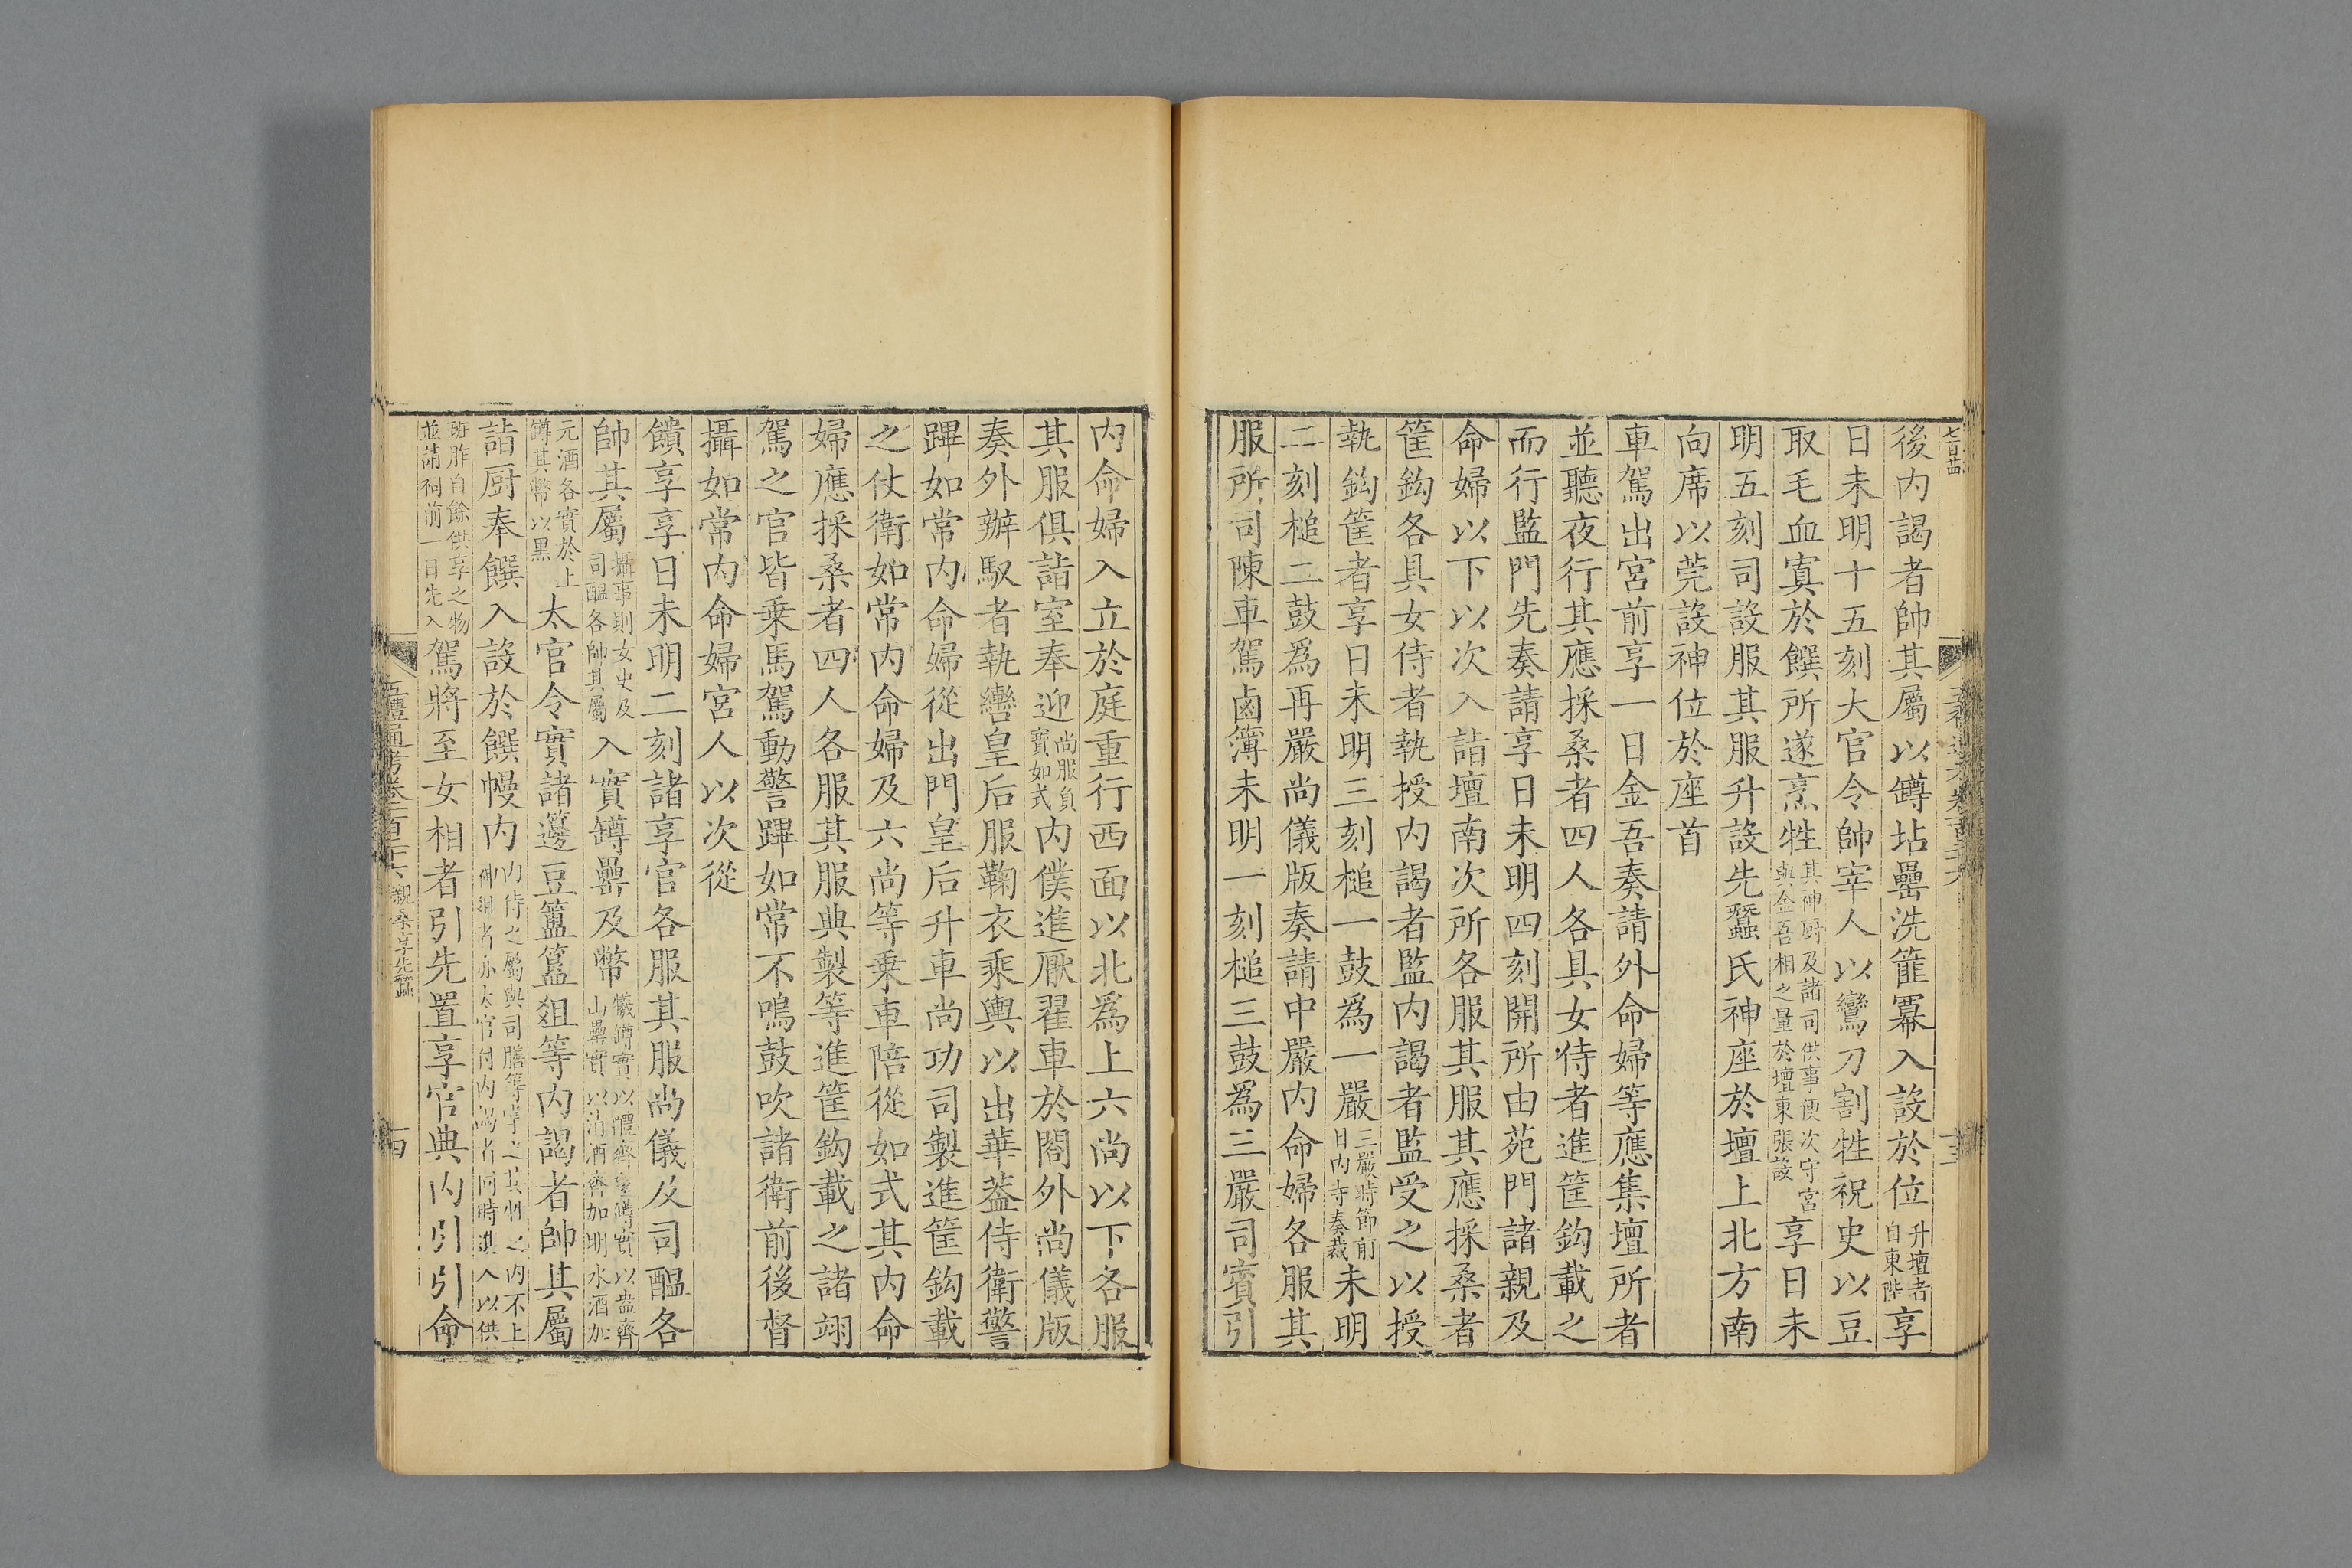 後内謁者帥其屬以罇坫罍洗篚冪入設於位升壇者自東陛享
日未明十五刻大官令帥宰人以鸞刀割牲祝史以豆
取毛血寘於饌所遂烹牲其神厨及諸司供事便次守宫與金吾相之量於壇東張設享日未
明五刻司設服其服升設先蠶氏神座於壇上北方南
向席以莞設神位於座首
車駕出宮前享一日金吾奏請外命婦等應集壇所者
並聽夜行其應採桑者四人各具女侍者進筐鈎載之
而行監門先奏請享日未明四刻開所由苑門諸親及
命婦以下以次入詣壇南次所各服其服其應採桑者
筐鈎各具女侍者執授内謁者監内謁者監受之以授
執鈎筐者享日未明三刻槌一鼓爲一嚴三嚴時節前日内寺奏裁未明
二刻槌二鼓爲再嚴尚儀版奏請中嚴内命婦各服其
服所司陳車駕鹵簿未明一刻槌三鼓爲三嚴司賓引
内命婦入立於庭重行西面以北爲上六尚以下各服
其服俱詣室奉迎尚服負寶如式内僕進厭翟車於閤外尚儀版
奏外辦馭者執轡皇后服鞠衣乘輿以出華葢侍衛警
蹕如常内命婦從出門皇后升車尚功司製進筐鈎載
之仗衛如常内命婦及六尚等乗車陪從如式其内命
婦應採桑者四人各服其服典製等進筐鈎載之諸翊
駕之官皆乗馬駕動警蹕如常不鳴鼓吹諸衛前後督
攝如常内命婦宮人以次從
饋享享日未明二刻諸享官各服其服尚儀及司醞各
帥其屬攝事則女史及司醞各帥其屬入實罇罍及幣犧罇實以醴齊象罇實以盎齊山罍實以清酒齊加明水酒加
元酒各實於上罇其幣以黑太官令實諸籩豆簠簋俎等内謁者帥其屬
詣厨奉饌入設於饌幔内内侍之屬與司膳等掌之其州之内不上神俎者亦太官付内謁者同時進入以供
班胙自餘供享之物並請祠前一日先入駕將至女相者引先置享官典内引引命
五禮通考卷一百二十六 親桑享先蠶